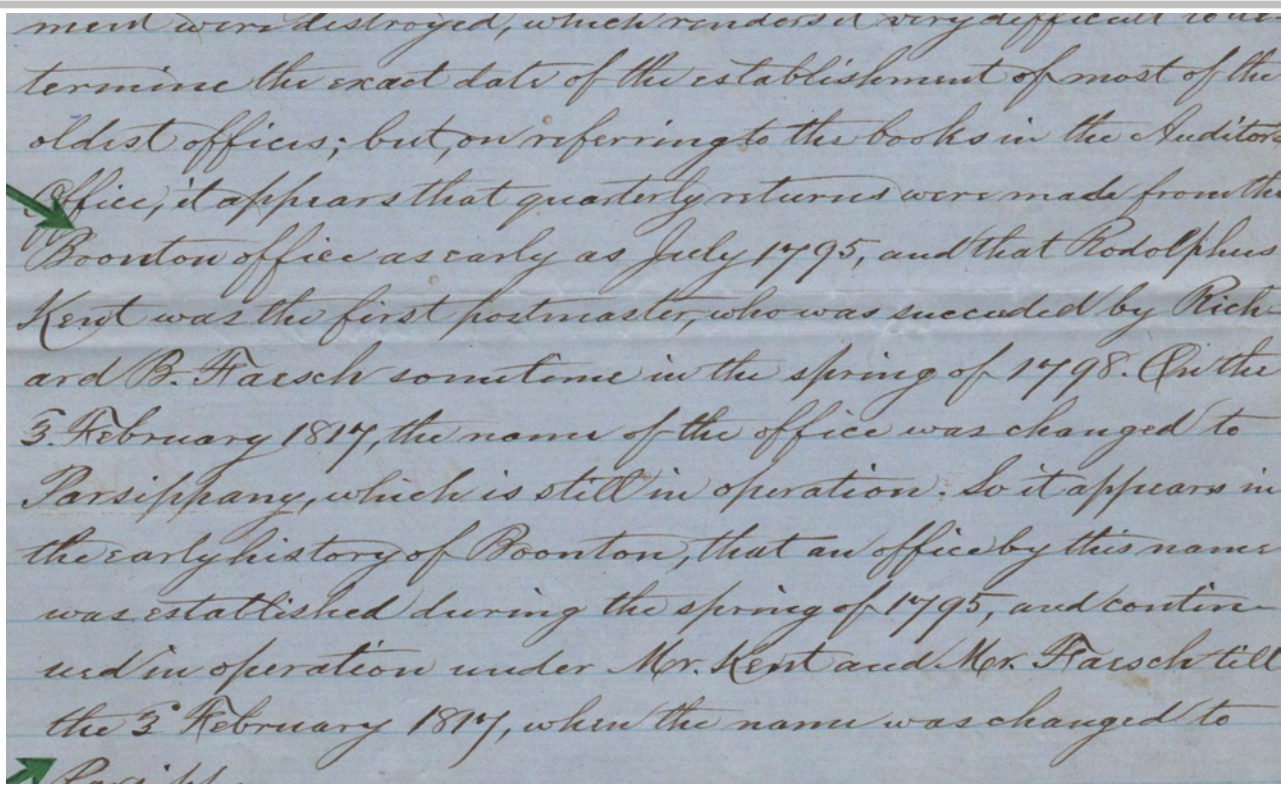 ment were destroyed, which renders it very difficult to de-
termine the exact date of the establishment of most of the
oldest offices; but, on referring to the books in the Auditors
Office, it appears that quarterly returns were made from the
Boonton office as early as July 1795, and that Rodolphus
Kent was the first postmaster, who was succeeded by Rich-
ard B. Faesch sometime in the spring of 1798. On the
3. February 1817, the name of the office was changed to
Parsippany, which is still in operation. So it appears in
the early history of Boonton, that an office by this name
was established during the spring of 1795, and contin-
ued in operation under Mr. Kent and Mr. Faesch till
the 3 February 1817, when the name was changed to